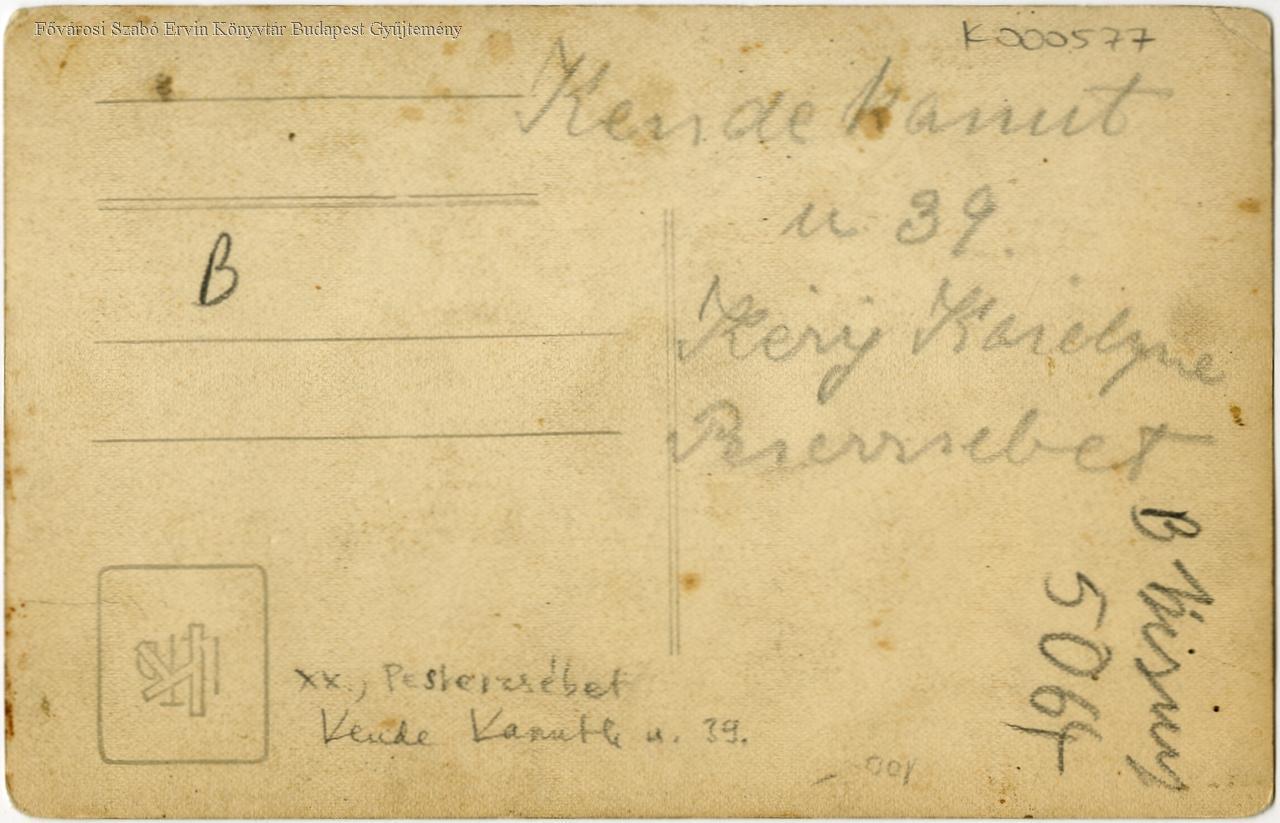 Fővárosi Szabó Ervin Könyvtár Budapest Gyűjtemény
K000577
Kende Kanut
u 39.
Kéry Károlyné
Pserzsébet
B
B
5064
xx., Pesterzsébet
Kende Kanuth u. 39.